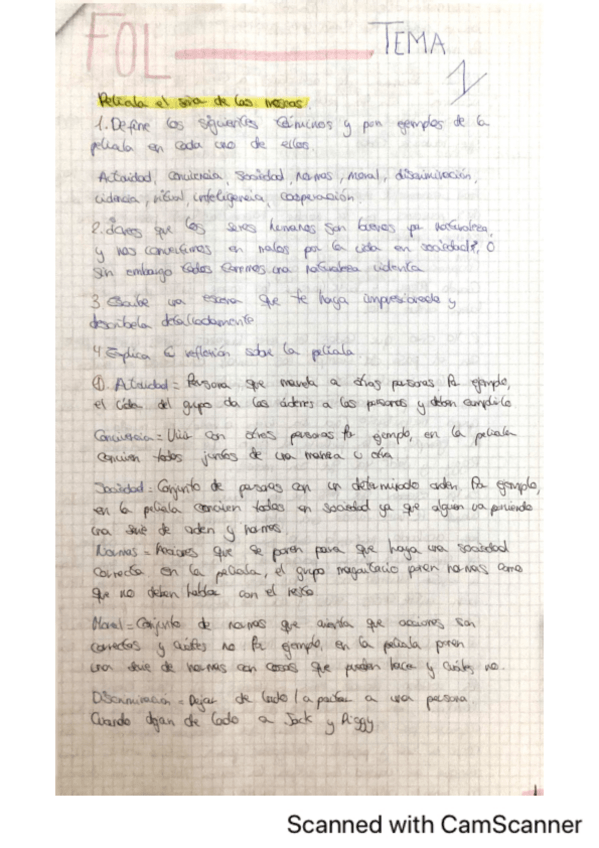 FOL TEMA 1
Pelicula el señor de las moscas.
1. Define los siguientes términos y pon ejemplos de la
pelicula en cada uno de ellos.
Autoridad, convivencia, sociedad, normas, moral, discriminación,
violencia, ritual, inteligencia, cooperación.
2. ¿Crees que los seres humanos son buenos por naturaleza,
y nos convertimos en malos por la vida en sociedad?, O
sin embargo todos tenemos una naturaleza violenta
3 Escribe una escena que te haya impresionado y
descríbela detalladamente
4. Explica la reflexión sobre la pelicula.
①. Autoridad = Persona que manda a otras personas. Por ejemplo,
el líder del grupo da las órdenes a las personas y deben cumplirlo
Convivencia = Vivir con otras personas. Por ejemplo, en la pelicula
conviven todos juntos de una manera u otra.
Sociedad = Conjunto de personas con un determinado orden. Por ejemplo,
en la pelicula conviven todos en sociedad ya que alguien va poniendo
una serie de orden y normas.
Normas = que se ponen para que haya una sociedad
correcta. En la pelicula, el grupo mayoritario ponen normas como
que no deben hablar con el resto
Moral = Conjunto de normas que que acciones son
correctas y cuáles no. Por ejemplo, en la pelicula ponen
una serie de normas con cosas que pueden hacer y cuáles no.
Discriminación = Dejar de lado / apartar a una persona.
Cuando dejan de lado a Jack y Piggy
1
Scanned with CamScanner